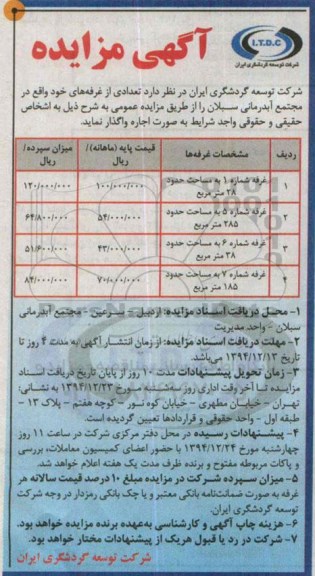 آگهی مزایده
I.T.D.C
شرکت توسعه گردشگری ایران
شرکت توسعه گردشگری ایران در نظر دارد تعدادی از غرفه‌های خود واقع در
مجتمع آبدرمانی سبلان را از طریق مزایده عمومی به شرح ذیل به اشخاص
حقیقی و حقوقی واجد شرایط به صورت اجاره واگذار نماید.
ردیف مشخصات غرفه‌ها قیمت پایه (ماهانه)/ ریال میزان سپرده/ ریال
۱ غرفه شماره ۱ به مساحت حدود ۲۸ متر مربع ۱۰۰/۰۰۰/۰۰۰ ۱۲۰/۰۰۰/۰۰۰
۲ غرفه شماره ۵ به مساحت حدود ۲۸۵ متر مربع ۵۴/۰۰۰/۰۰۰ ۶۴/۸۰۰/۰۰۰
۳ غرفه شماره ۶ به مساحت حدود ۳۸ متر مربع ۴۳/۰۰۰/۰۰۰ ۵۱/۶۰۰/۰۰۰
۴ غرفه شماره ۷ به مساحت حدود ۱۸۵ متر مربع ۷۰/۰۰۰/۰۰۰ ۸۴/۰۰۰/۰۰۰
۱- محل دریافت اسناد مزایده: اردبیل - سرعین - مجتمع آبدرمانی
سبلان - واحد مدیریت
۲- مهلت دریافت اسناد مزایده: از زمان انتشار آگهی به مدت ۴ روز تا
تاریخ ۱۳۹۴/۱۲/۱۳ می‌باشد.
۳- زمان تحویل پیشنهادات مدت ۱۰ روز از پایان تاریخ دریافت اسناد
مزایده تا آخر وقت اداری روز سه‌شنبه مورخ ۱۳۹۴/۱۲/۲۳ به نشانی:
تهران - خیابان مطهری - خیابان کوه نور - کوچه هفتم - پلاک ۱۳ -
طبقه اول - واحد حقوقی و قراردادها تعیین گردیده است.
۴- پیشنهادات رسیده در محل دفتر مرکزی شرکت در ساعت ۱۱ روز
چهارشنبه مورخ ۱۳۹۴/۱۲/۲۴ با حضور اعضای کمیسیون معاملات، بررسی
و پاکات مربوطه مفتوح و برنده ظرف مدت یک هفته اعلام خواهد شد.
۵- میزان سپرده شرکت در مزایده مبلغ ۱۰ درصد قیمت سالانه هر
غرفه به صورت ضمانت‌نامه بانکی معتبر و یا چک بانکی رمزدار در وجه شرکت
توسعه گردشگری ایران.
۶- هزینه چاپ آگهی و کارشناسی به‌عهده برنده مزایده خواهد بود.
۷- شرکت در رد یا قبول هریک از پیشنهادات مختار خواهد بود.
شرکت توسعه گردشگری ایران